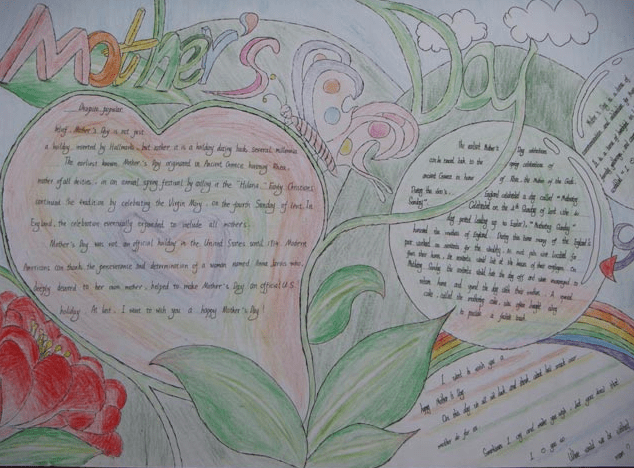 Mother's Day
Despite popular
belief, Mother's Day is not just
a holiday invented by Hallmark, but rather it is a holiday dating back several millennia.
The earliest known Mother's Day originated in Ancient Greece honoring Rhea,
mother of all deities, in an annual spring festival by calling it the "Hilaria." Early Christians
continued the tradition by celebrating the Virgin Mary, on the fourth Sunday of Lent. In
England, the celebration eventually expanded to include all mothers.
Mother's Day was not an official holiday in the United States until 1914. Modern
Americans can thank the perseverance and determination of a woman named Anna Jarvis who,
deeply devoted to her own mother, helped to make Mother's Day an official U.S.
holiday. At last, I want to wish you a happy Mother's Day!
The earliest Mother's Day celebrations
can be traced back to the spring celebrations of
ancient Greece in honor of Rhea, the Mother of the Gods.
During the England celebrated a day called "Mothering
Sunday". Celebrated on the 4th Sunday of Lent (the 40
day period leading up to Easter), "Mothering Sunday"
honored the mothers of England. During this time many of the England's
poor worked as servants for the wealthy. As most jobs were located far
from their homes, the servants would live at the houses of their employers. On
Mothering Sunday the servants would have the day off and were encouraged to
return home and spend the day with their mothers. A special
cake, called the mothering cake, was often brought along
to provide a festive touch.
I want to wish you a
happy Mother's Day.
On this day we all sit back and think about how much our
mother do for us.
Sometimes I cry and make you sigh, but you know that
I you so.